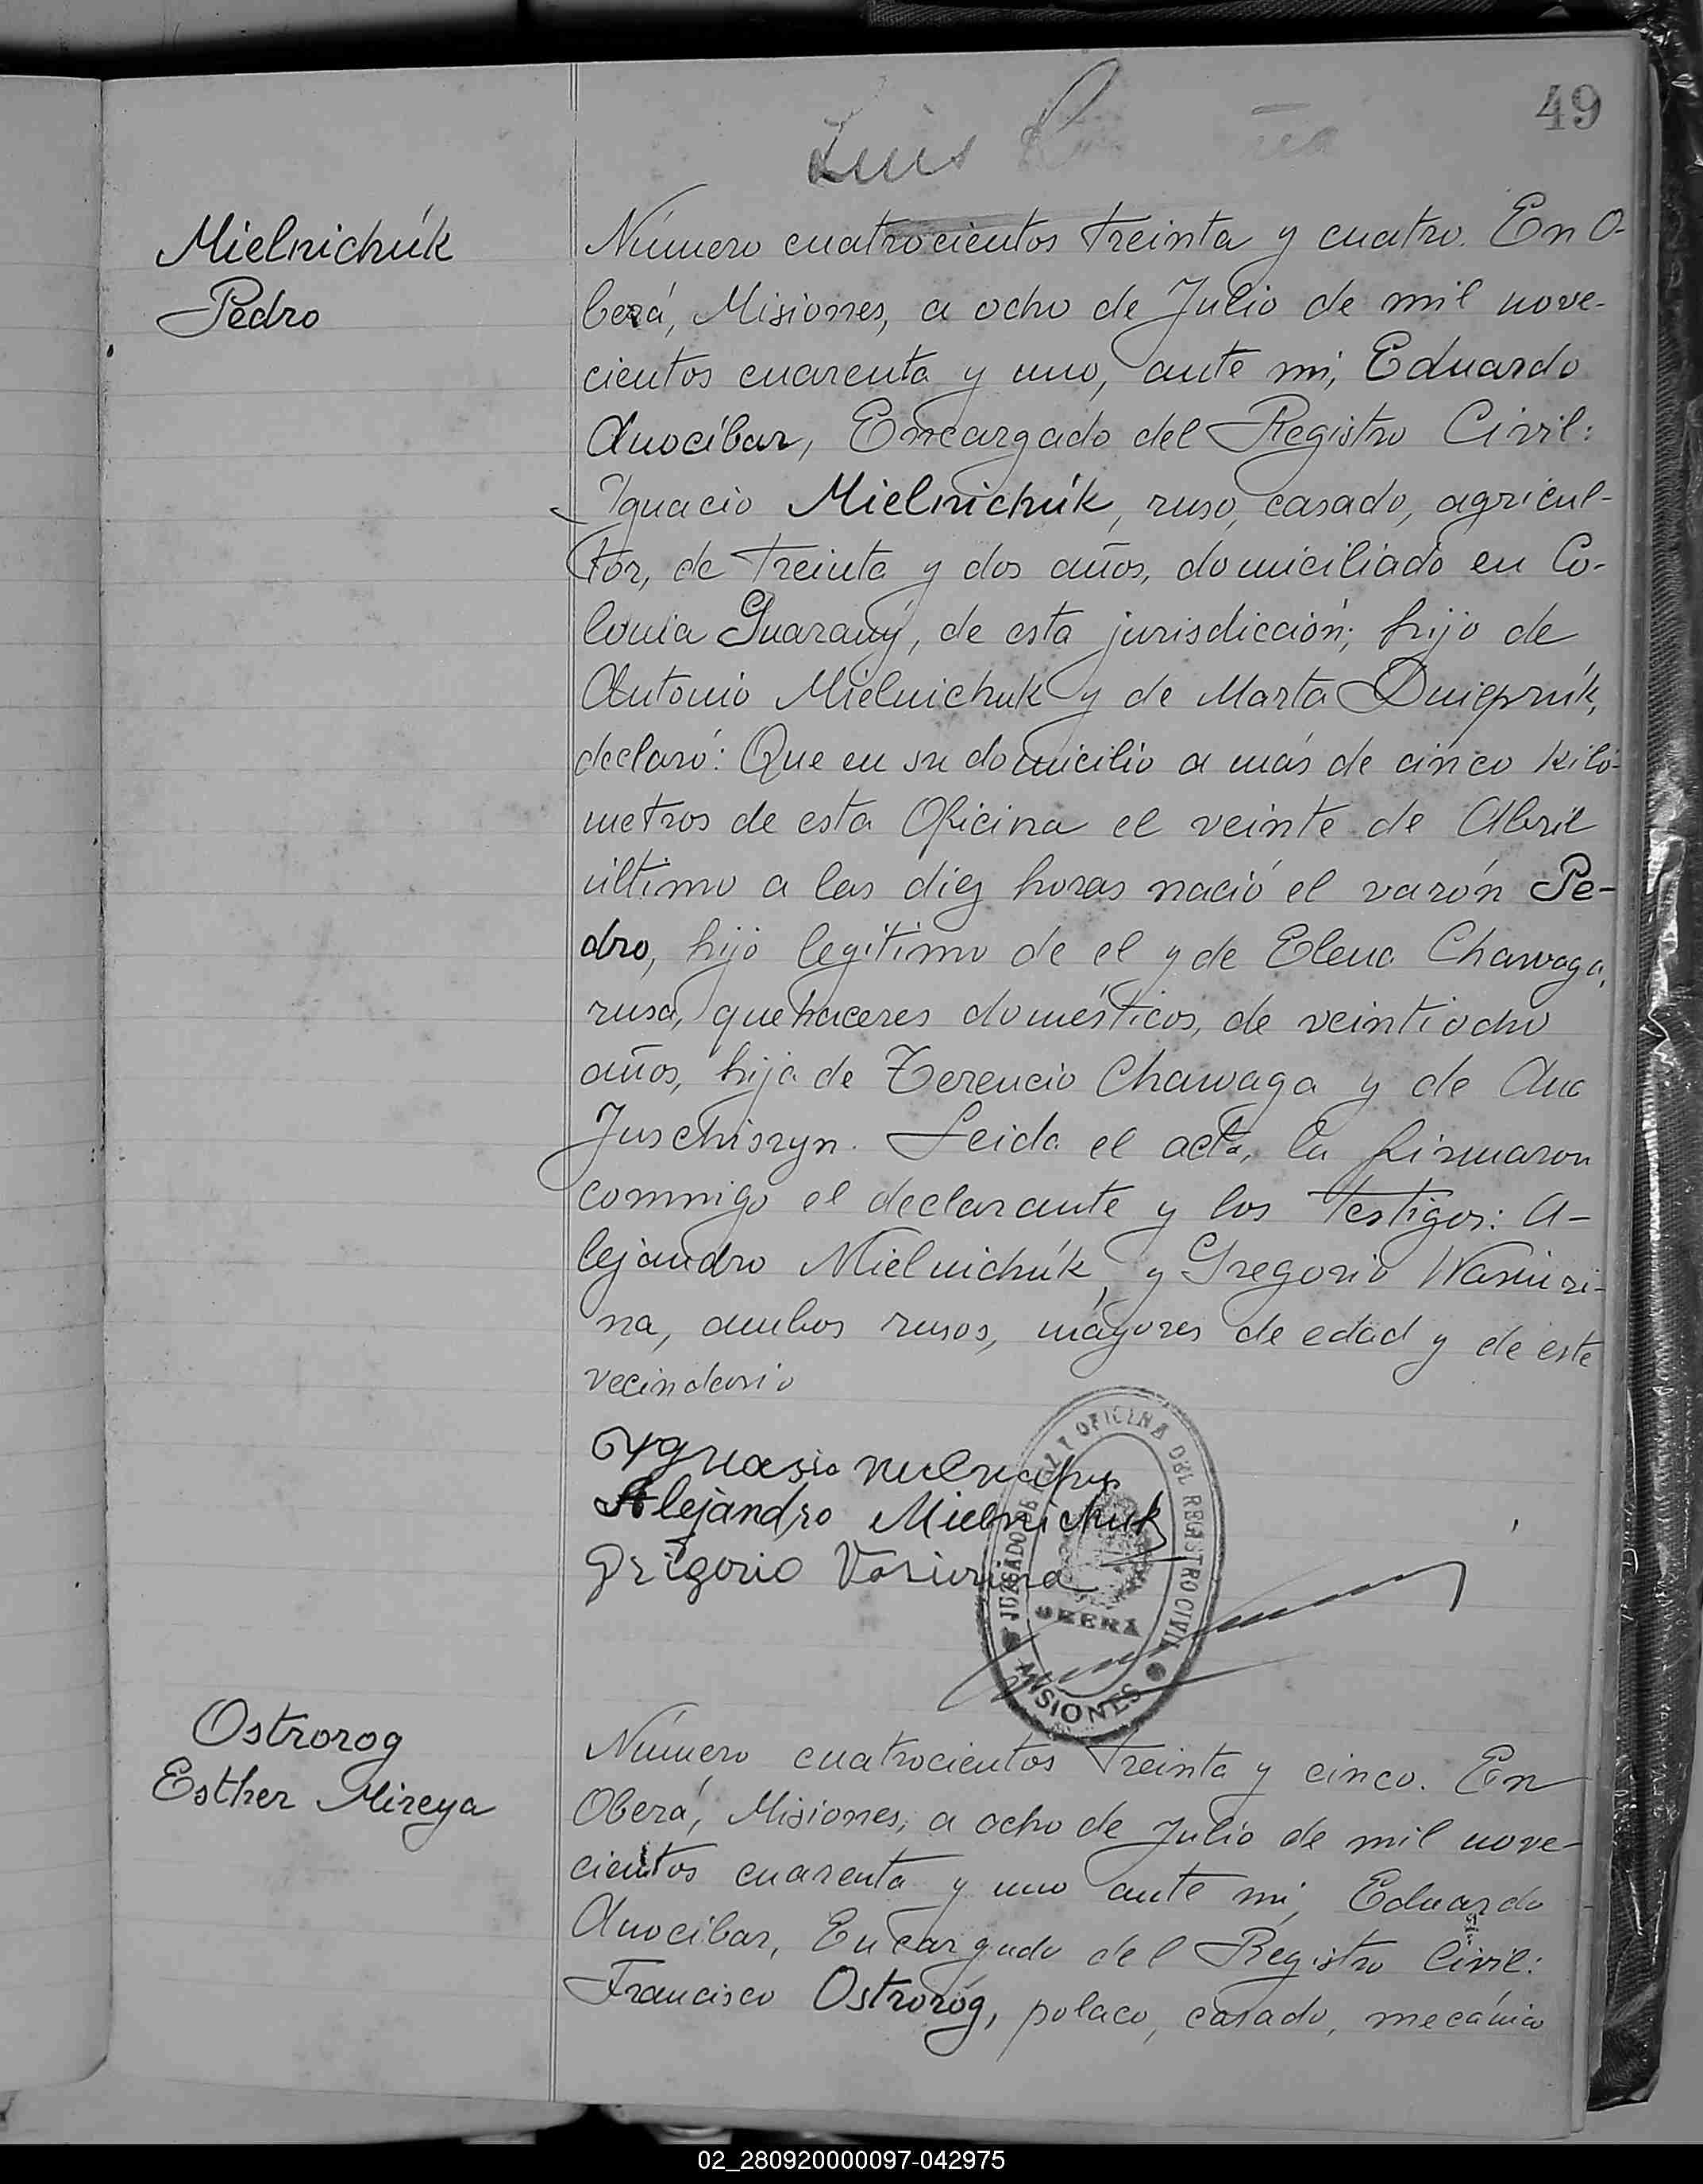 49
Luis
Mielnichúk
Pedro
Número cuatrocientos treinta y cuatro. En O-
berá, Misiones, a ocho de Julio de mil nove-
cientos cuarenta y uno, ante mi, Eduardo
Anocíbar, Encargado del Registro Civil:
Ignacio Mielnichúk, ruso, casado, agricul-
tor, de treinta y dos años, domiciliado en Co-
lonia Guarany, de esta jurisdicción; hijo de
Antonio Mielnichuk y de Marta
declaró: Que en su domicilio a más de cinco kiló-
metros de esta Oficina el veinte de Abril
último a las diez horas nació el varón Pe-
dro, hijo legítimo de el y de Elena Chawaga,
rusa, quehaceres domésticos, de veintiocho
años, hija de Terencio Chawaga y de Ana
Juschiszyn. Leida el acta, la firmaron
conmigo el declarante y los testigos: A-
lejandro Mielnichúk, y Gregorio Wasiuri-
na, ambos rusos, mayores de edad y de este
vecindario
Ygnasio
Alejandro Mielnichuk
Grigorio Vasiurina
JUZGADO DE PAZ Y OFICINA DEL REGISTRO CIVIL
OBERÁ
MISIONES
Ostrorog
Esther Mireya
Número cuatrocientos treinta y cinco. En
Oberá, Misiones, a ocho de Julio de mil nove-
cientos cuarenta y uno ante mi, Eduardo
Anocíbar, Encargado del Registro Civil:
Francisco Ostroróg, polaco, casado, mecánico
02_280920000097-042975